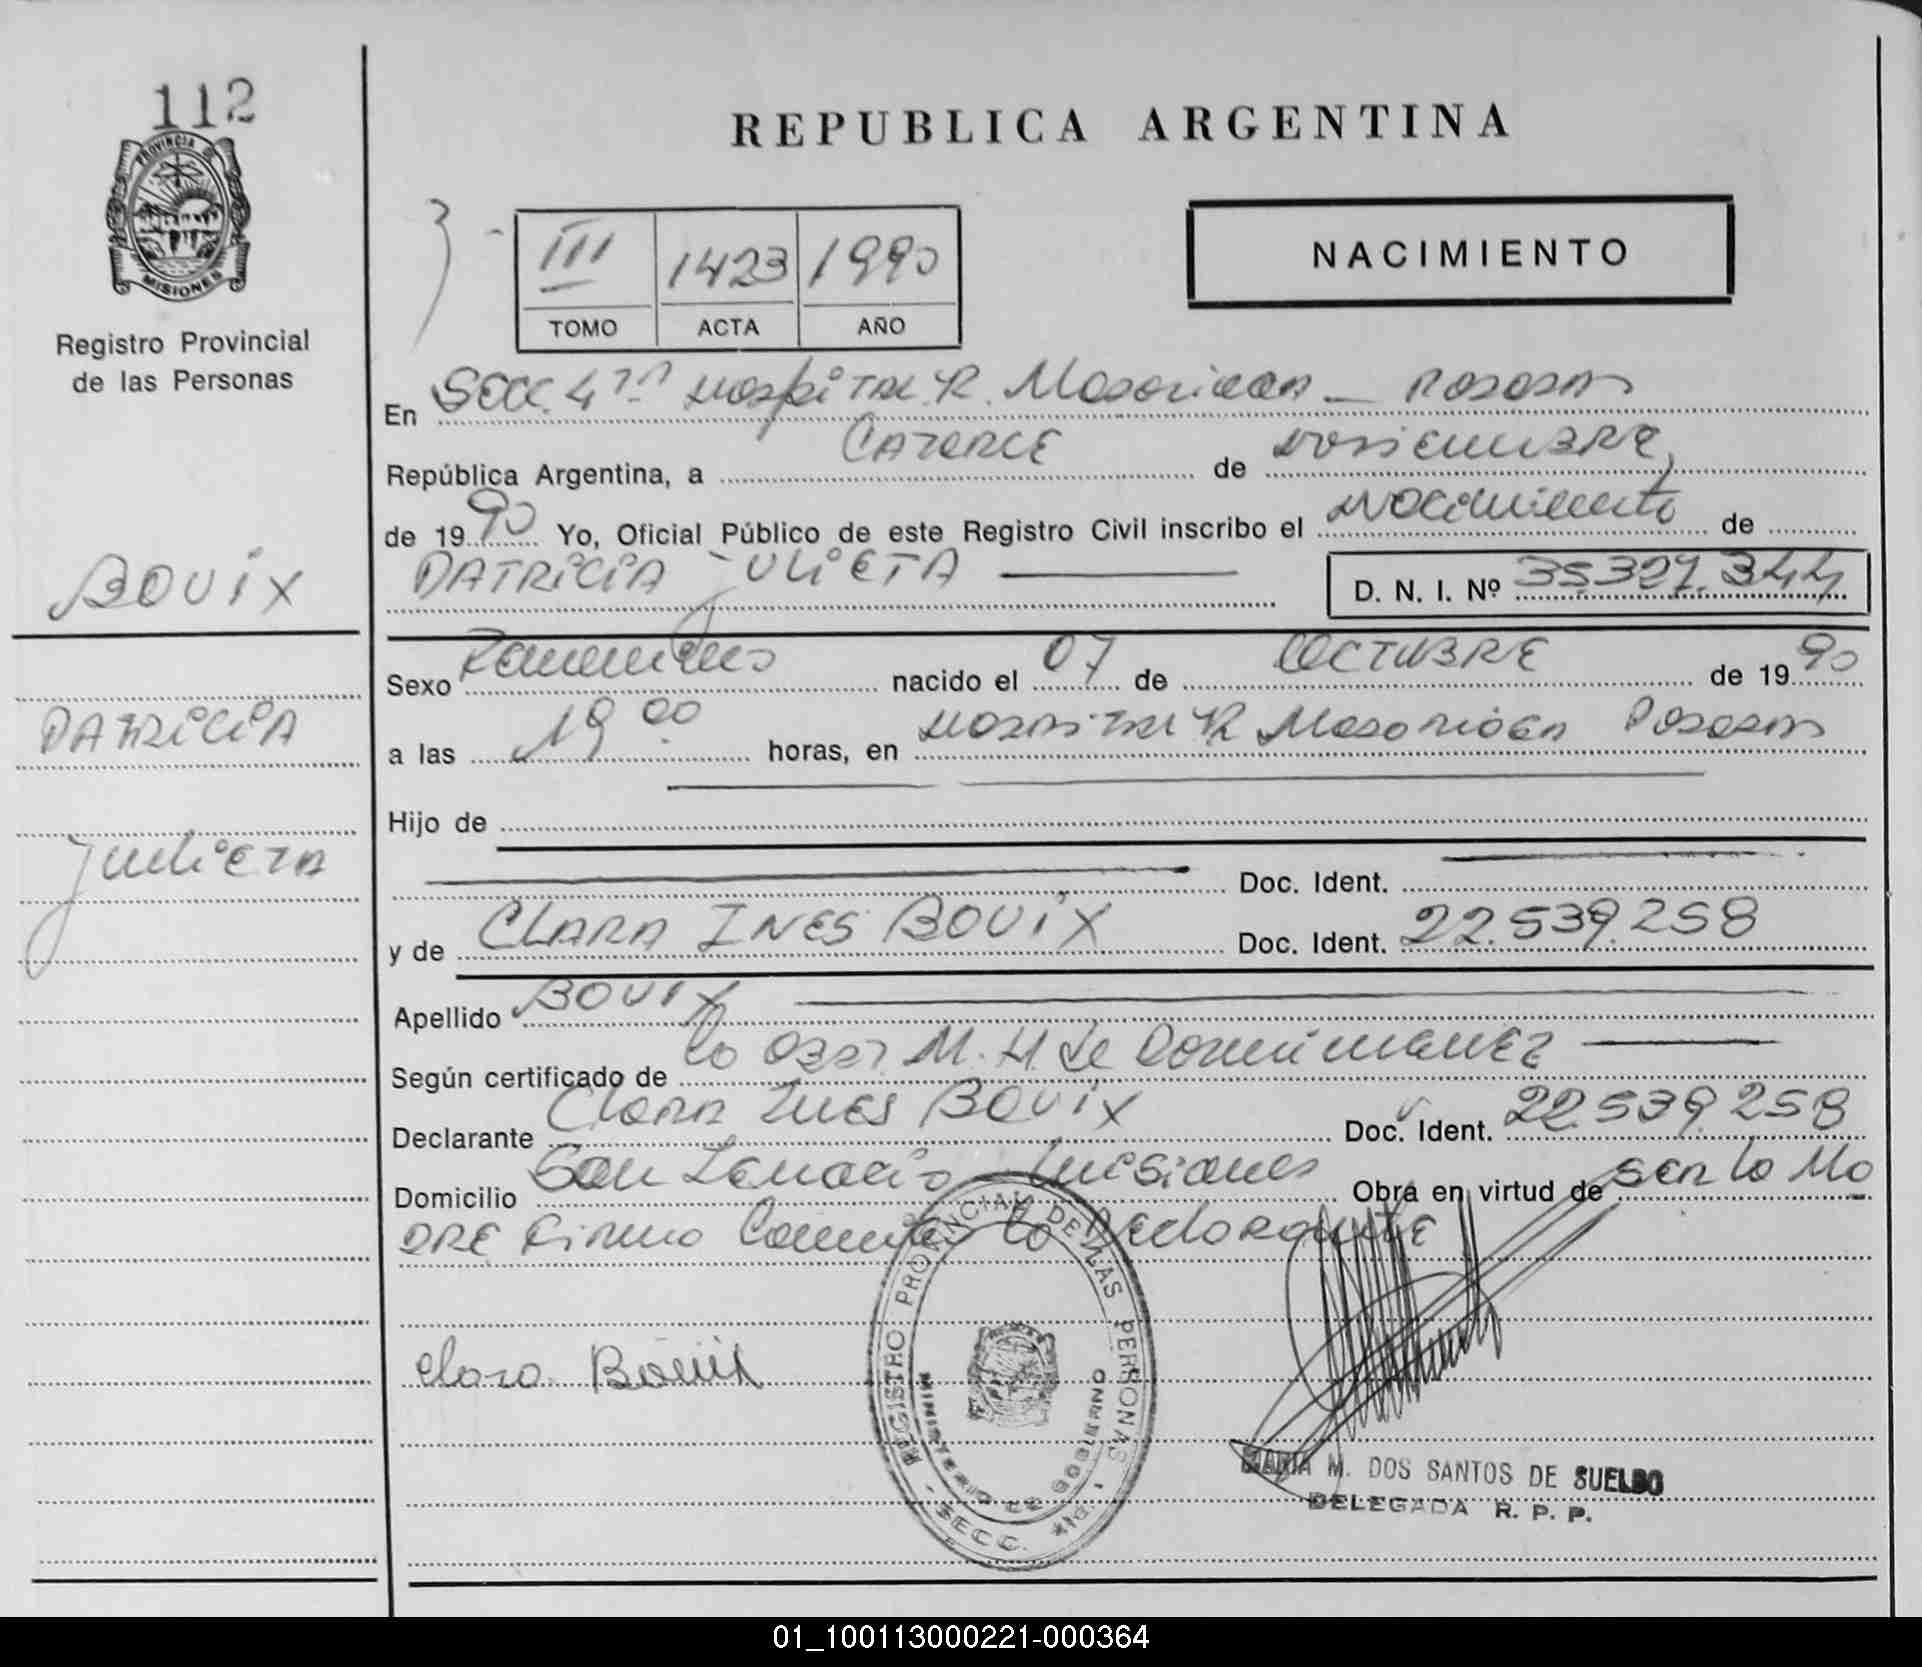 112
PROVINCIA DE
MISIONES
Registro Provincial
de las Personas
BOUIX
PATRICIA
Julieta
REPUBLICA ARGENTINA
3 -
III 1423 1990
TOMO ACTA AÑO
NACIMIENTO
En Secc. 4ta Hospital R. Madariaga - Posadas
República Argentina, a CATORCE de DICIEMBRE
de 1990 Yo, Oficial Público de este Registro Civil inscribo el nacimiento de
PATRICIA JULIETA
D. N. I. Nº 35.327.344
Sexo Femenino nacido el 07 de OCTUBRE de 1990
a las 19 00 horas, en Hospital R Madariaga Posadas
Hijo de
Doc. Ident.
y de CLARA INES BOUIX Doc. Ident. 22.539.258
Apellido BOUIX
Según certificado de la M. H de
Declarante Clara Ines BOUIX Doc. Ident. 22.539.258
Domicilio San Ignacio - Misiones Obra en virtud de ser la Ma
DRE Firma la Declarante
Clara Bouix
REGISTRO PROVINCIAL DE LAS PERSONAS
MINISTERIO DE GOBIERNO
SECC.
MARIA M. DOS SANTOS DE SUELDO
DELEGADA R. P. P.
01_100113000221-000364